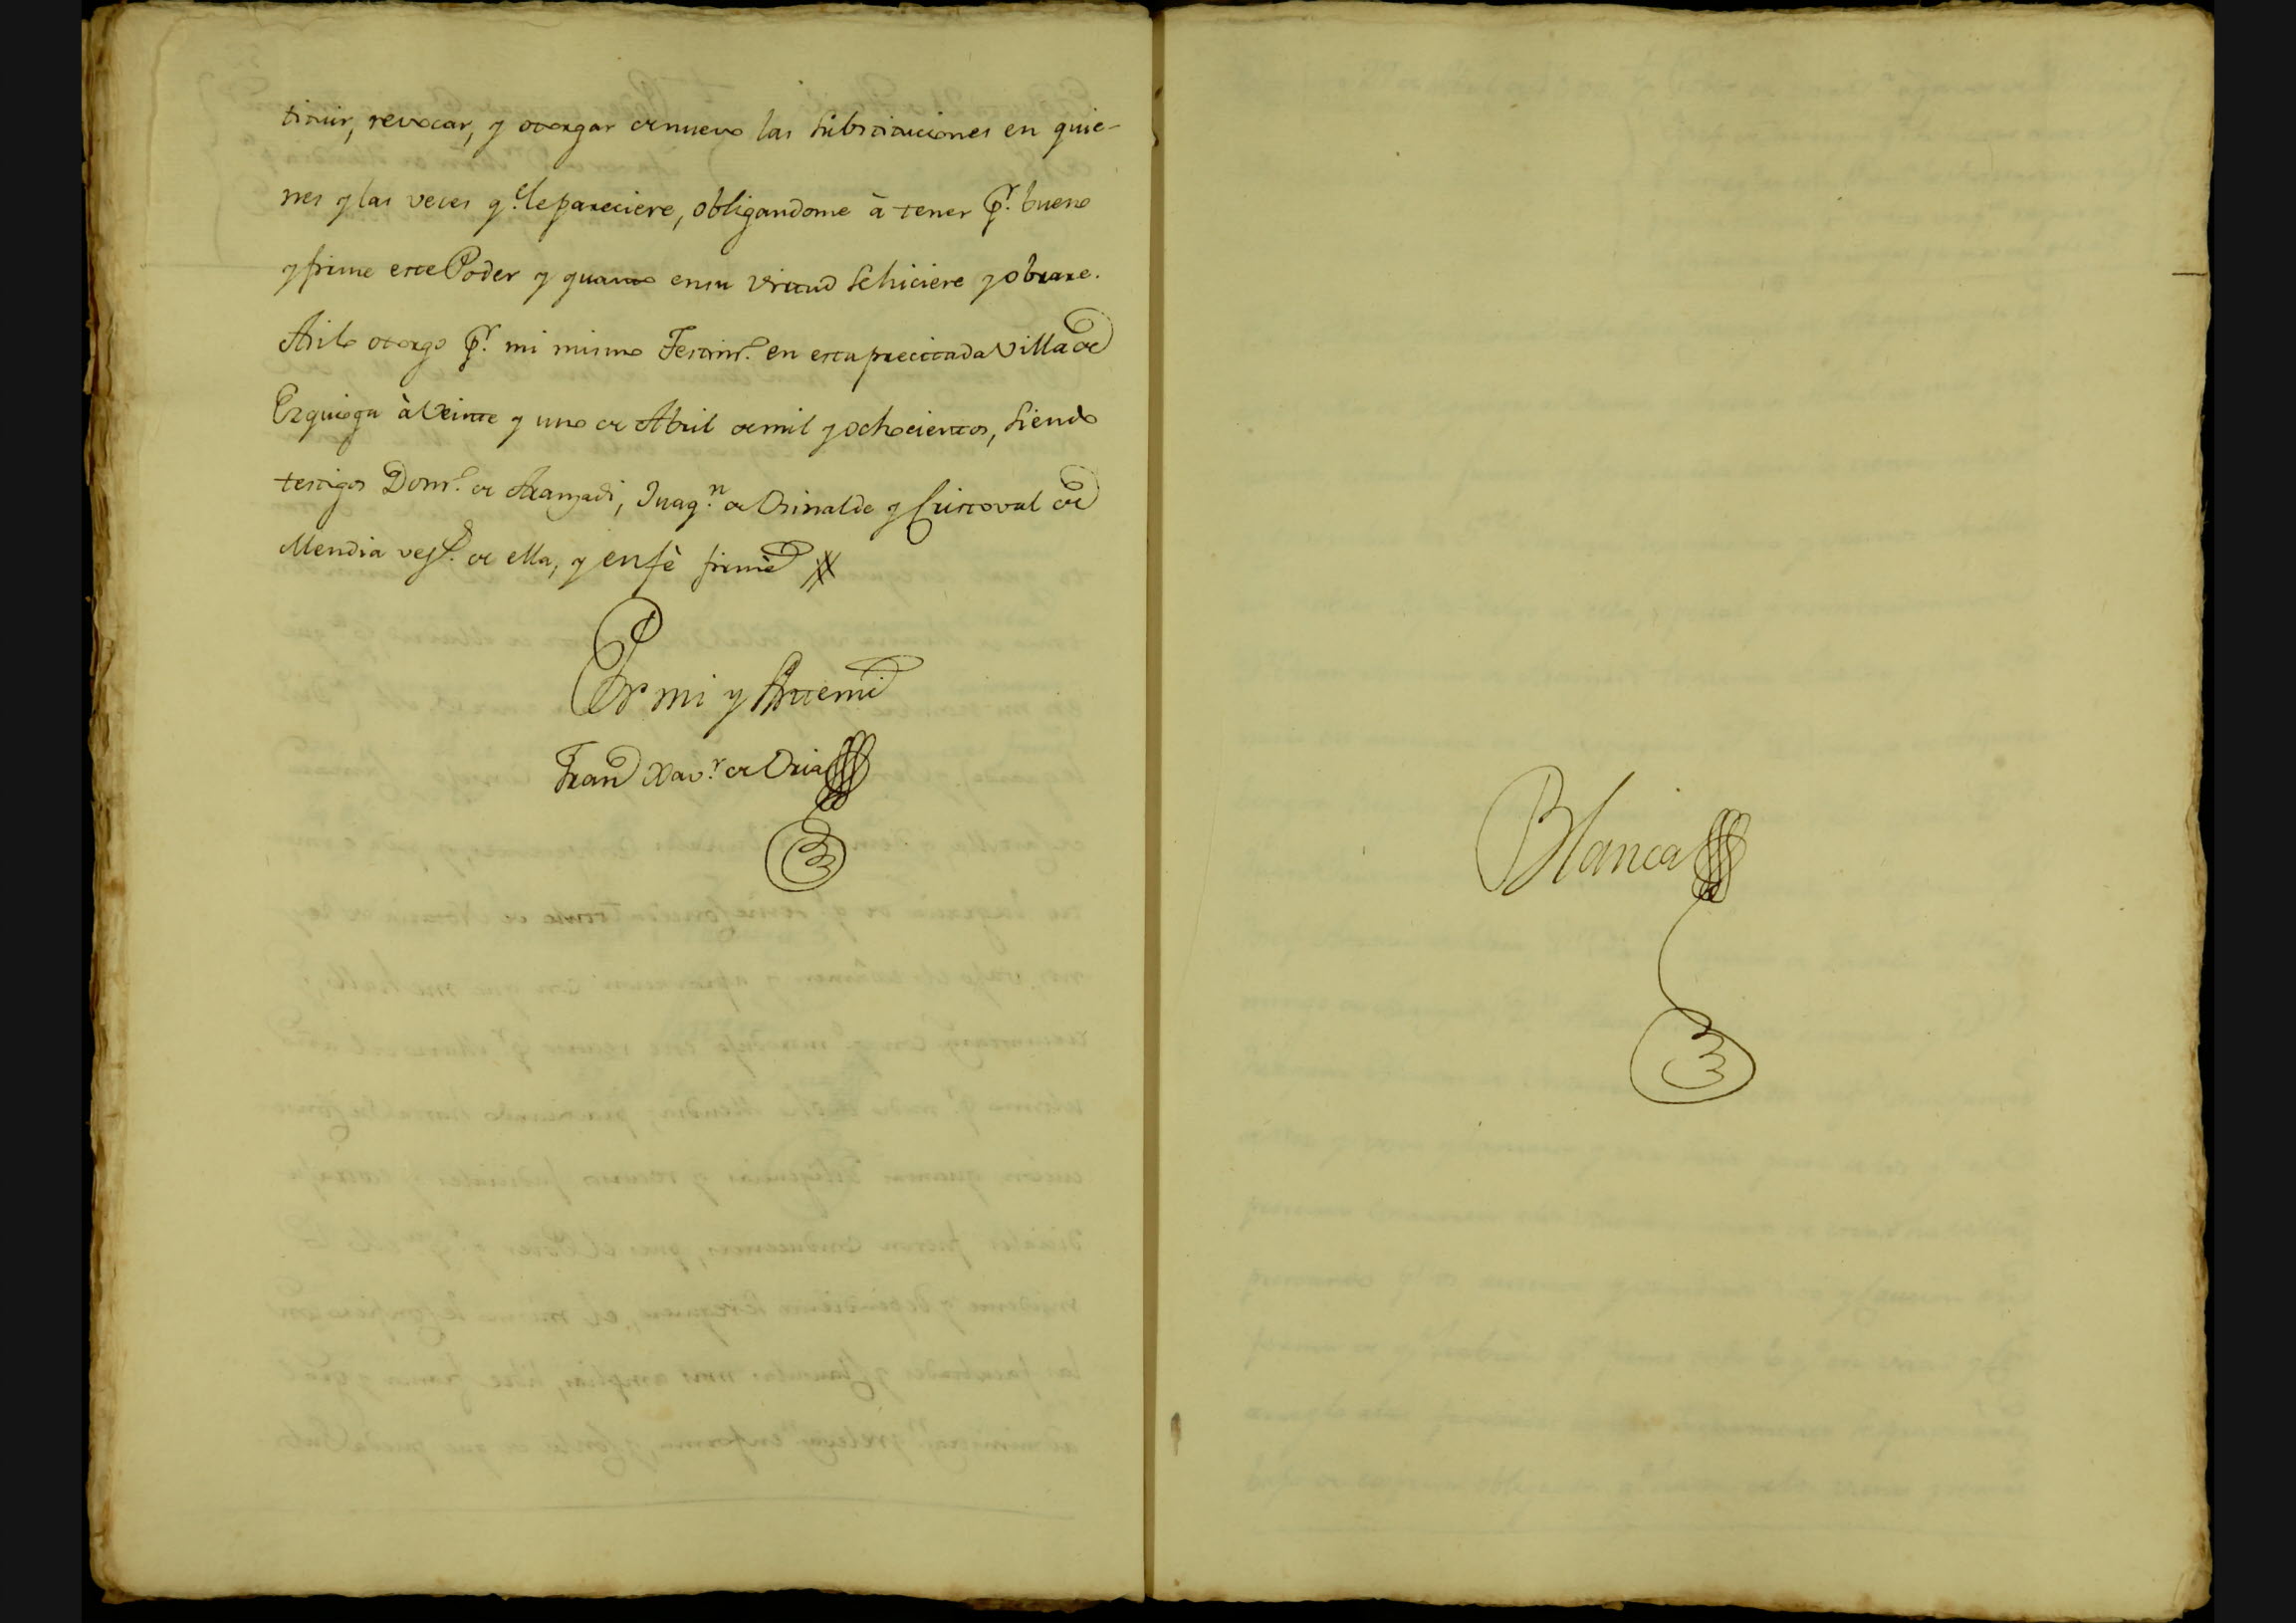 tituir, revocar, y otorgar de nuevo las Substituciones en quie-
nes y las veces q.e le pareciere, obligandome à tener p.r bueno
y firme este Poder y quanto en su virtud se hiciere y obrare.
Asi lo otorgo p.r mi mismo Testim.o en esta precitada Villa de
Ezquioga à Veinte y uno de Abril de mil y ochocientos, siendo
testigos Dom.o de Aramadi, Juaq.n de Orinalde y Cristoval de
Mendia vez.s de ella, y en fè firmè
Por mi y Ante mi
Fran.co Xav.r de Oria
Blanca